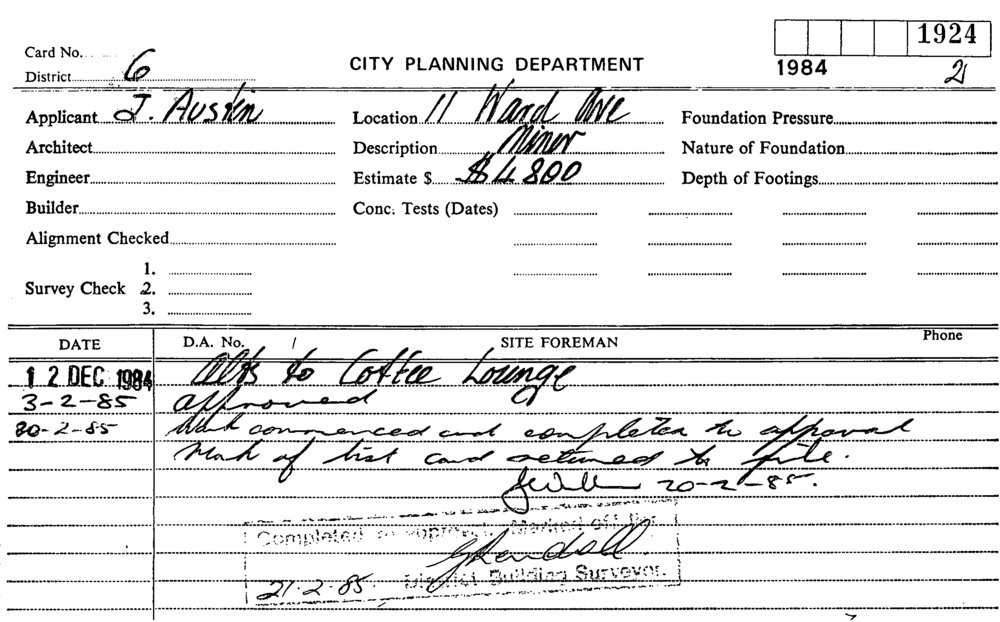 1924
Card No.
CITY PLANNING DEPARTMENT
1984
District 6
2
Applicant J. Austin Location 11 Ward Ave Foundation Pressure
Architect Description Minor Nature of Foundation
Engineer Estimate $ $4800 Depth of Footings
Builder Conc. Tests (Dates)
Alignment Checked
1.
Survey Check 2.
3.
DATE D.A. No. SITE FOREMAN Phone
12 DEC 1984 Alts to Coffee Lounge
3-2-85 approved
20-2-85 Work commenced and completed to approval
Mark of list card returned to file.
20-2-85.
Completed to approval. Marked off list
G Kendall.
21-2-85 District Building Surveyor.